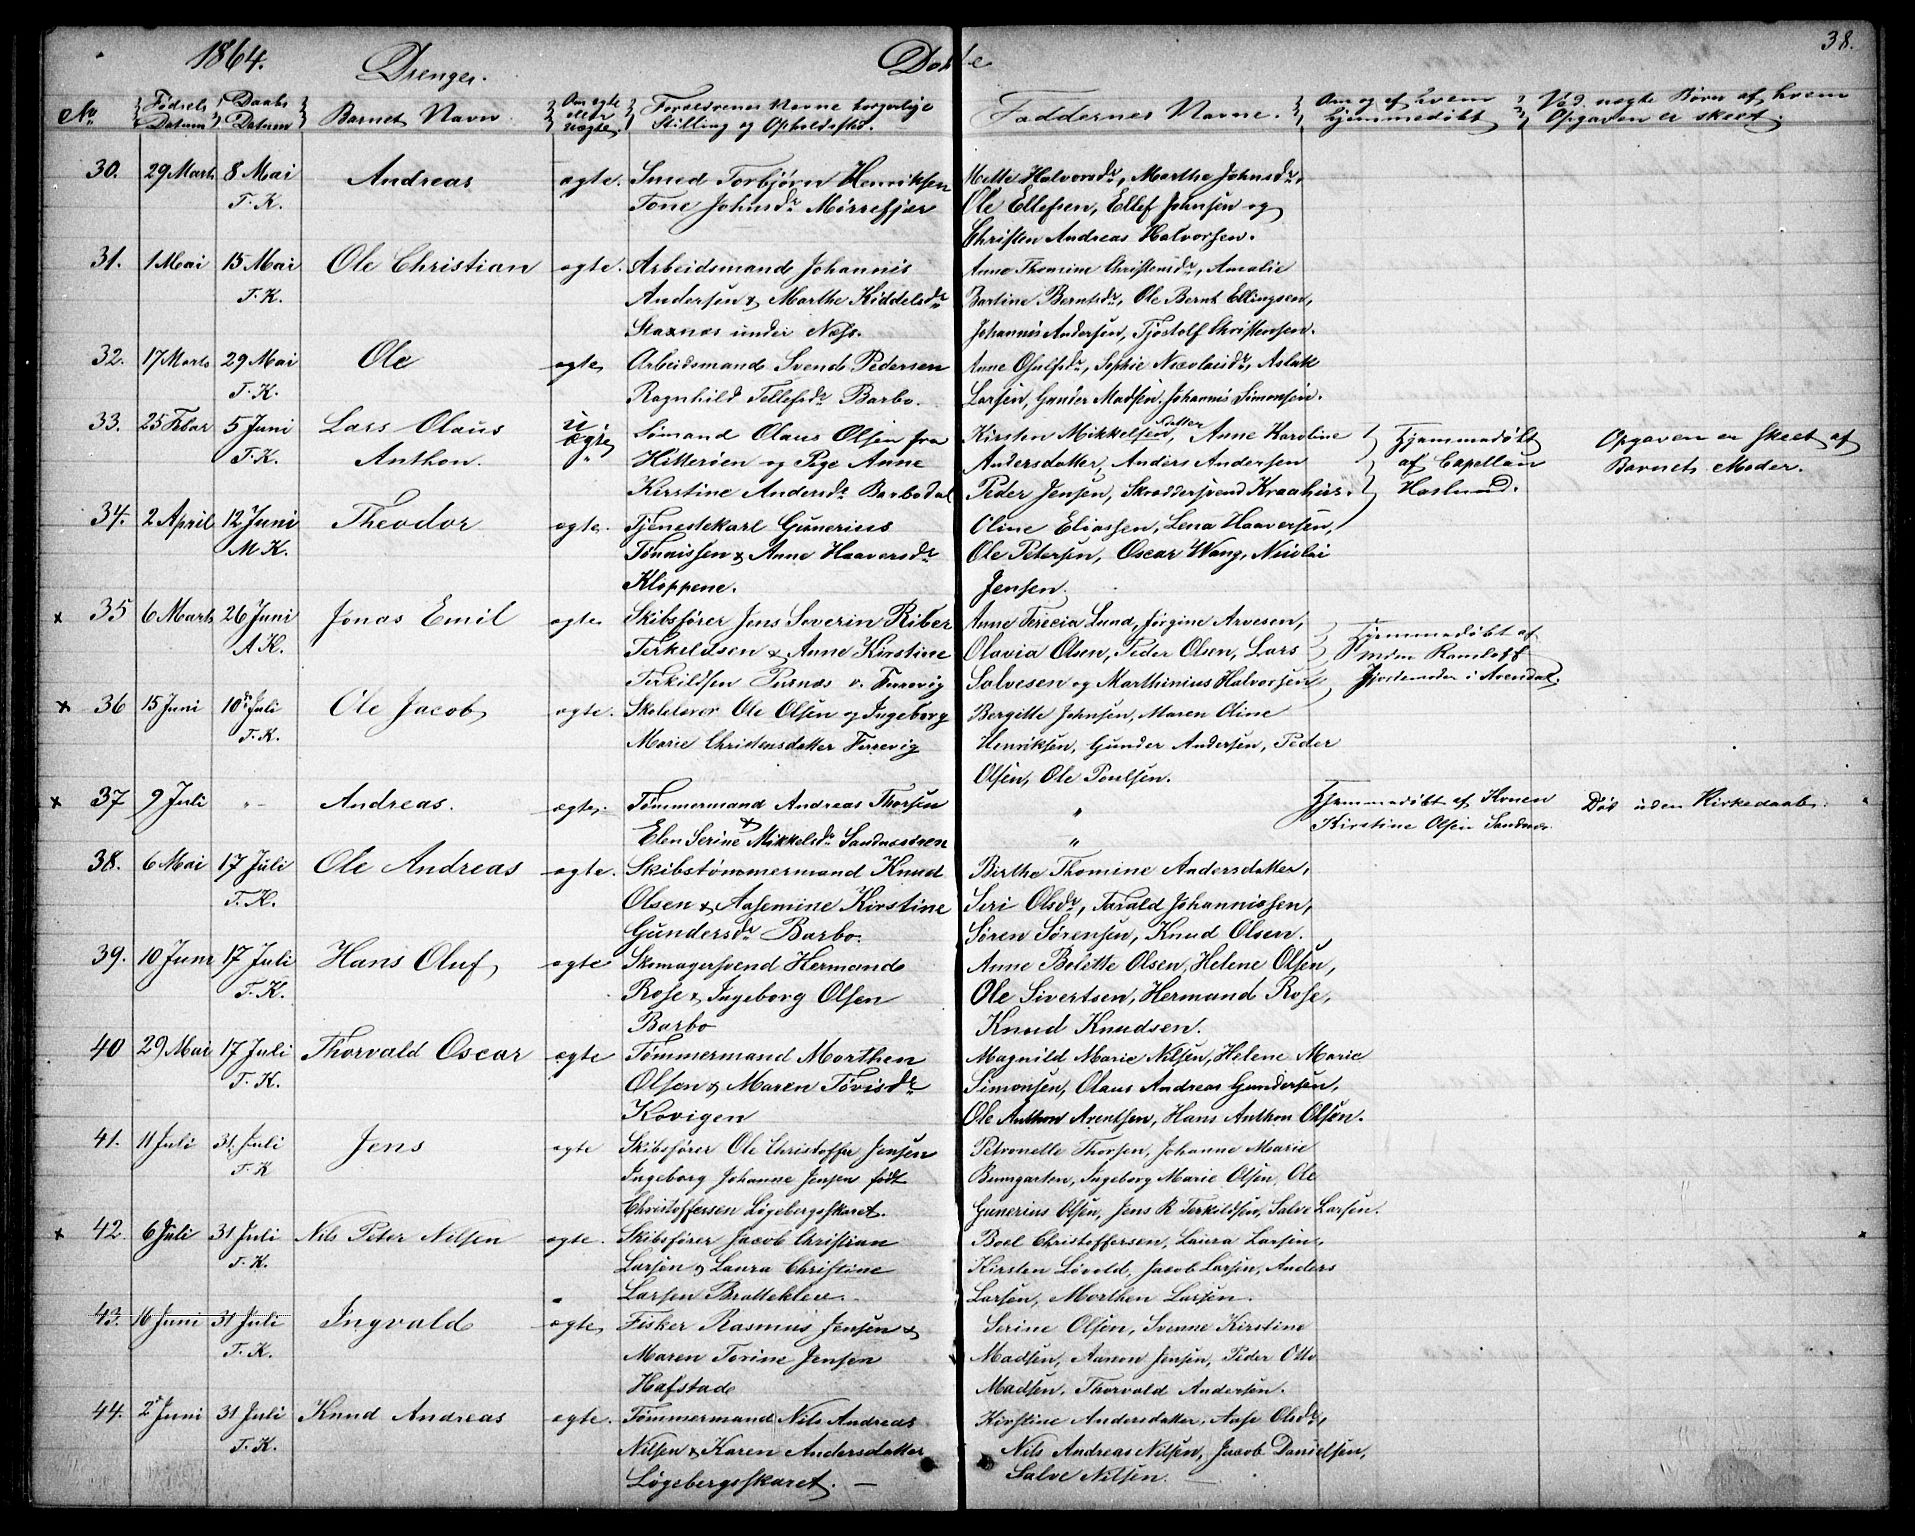 1864. Drenger. Døbte 38.
No Fødsels Datum Daabs Datum Barnets Navn Om ægte eller uægte. Forældrenes Navne borgerlige Stilling og Opholdssted. Faddernes Navne. Om og af hvem hjemmedøbt Ved uægte Børn af hvem Opgaven er skeet.
30. 29 Marts 8 Mai Andreas ægte. Smed Torbjørn Henriksen Mette Halvorsdr, Marthe Johnsdr,
T. K. Tone Johnsdr Mørrefjær Ole Ellefsen, Ellef Johnsen og
Christen Andreas Halvorsen.
31. 1 Mai 15 Mai Ole Christian ægte. Arbeidsmand Johannis Anne Thomine Christensdr, Amalie
T. K. Andersen & Marthe Kiddelsdr Bartine Berntsdr, Ole Bernt Ellingsen,
Staxnæs under Næss. Johannis Andersen, Tjøstolf Christensen.
32. 17 Marts 29 Mai Ole ægte Arbeidsmand Svend Pedersen Anne Osulfsdr, Sophie Nicolaisdr, Aslak
T. K. Ragnhild Tellefsdr Barbo. Larsen, Gunder Madsen, Johannis Simonsen.
33. 25 Febar 5 Juni Lars Olaus u. Sømand Olaus Olsen fra Kirsten Mikkelsen Datter, Anne Karoline Hjemmedøbt Opgaven er skeet af
T. K. Anthon. ægte Hitterøen og Pige Anne Andersdatter, Anders Andersen af Capellan Barnets Moder.
Kirstine Andersdr Barbodal Peder Jensen, Skræddersvend Kraahus. Haslund.
34. 2 April 12 Juni Theodor ægte. Tjenestekarl Gunerius Oline Eliassen, Lena Haaversen,
M K. Tønnissen & Anne Haaversdr Ole Petersen, Oscar Wang, Nicolai
Kloppene. Jensen.
x 35 6 Marts 26 Juni Jonas Emil ægte Skibsfører Jens Severin Riber Anne Terecia Lund, Jørgine Arvesen, Hjemmedøbt af
A K. Terkeldsen & Anne Kirstine Olavia Olsen, Peder Olsen, Lars Mdm Ramloff
Terkildsen Purnæs v. Færevig Salvesen og Marthinius Halvorsen Jordemoder i Arendal.
x 36 15 Juni 10de Juli Ole Jacob ægte. Skolelærer Ole Olsen og Ingeborg Bergitte Johnsen, Maren Oline
T. K. Marie Christensdatter Færevig Henriksen, Gunder Andersen, Peder
Olsen, Ole Poulsen.
x 37 9 Juli " - Andreas. ægte. Tømmermand Andreas Thorsen " Hjemmedøbt af Konen Død uden Kirkedaab.
& Elen Serine Mikkelsdr Sandnæsveen " Kirstine Olsen Sandnæs.
38. 6 Mai 17 Juli Ole Andreas ægte. Skibstømmermand Knud Birthe Thomine Andersdatter,
T. K. Olsen & Aasemine Kirstine Seri Olsdr, Tarald Johannissen,
Gundersdr Barbo. Søren Sørensen, Knud Olsen.
39. 10 Juni 17 Juli Hans Oluf ægte Skomagersvend Hermand Anne Bolette Olsen, Helene Olsen,
T. K. Rose & Ingeborg Olsen Ole Sivertsen, Hermand Rose,
Barbo Knud Knudsen.
40 29 Mai 17 Juli Thorvald Oscar ægte Tømmermand Morthen Magnild Marie Nilsen, Helene Marie
T. K. Olsen & Maren Tøvisdr Simonsen, Olaus Andreas Gundersen,
Kovigen Ole Anthon Arentsen, Hans Anthon Olsen.
41. 11 Juli 31 Juli Jens ægte Skibsfører Ole Christoffer Jensen Petronelle Thorsen, Johanne Marie
T. K Ingeborg Johanne Jensen født Bumgarten, Ingeborg Marie Olsen, Ole
Christoffersen Løgebergsskaret. Gunerius Olsen, Jens R Terkildsen, Salve Larsen.
x 42. 6 Juli 31 Juli Nils Peter Nilsen ægte. Skibsfører Jacob Christian Boel Christoffersen, Laura Larsen,
T. K. Larsen & Laura Christine Kirsten Løvold, Jacob Larsen, Anders
Larsen Bratteklev. Larsen, Morthen Larsen.
43. 16 Juni 31 Juli Ingvald ægte Fisker Rasmus Jensen & Serine Olsen, Svenne Kirstine
T. K. Maren Torine Jensen Madsen, Aanon Jensen, Peder Otto
Hafstad Madsen, Thorvald Andersen.
44. 2 Juni 31 Juli Knud Andreas ægte. Tømmermand Nils Andreas Kirstine Andersdatter, Aase Olsdr,
T. K. Nilsen & Karen Andersdatter Nils Andreas Nilsen, Jacob Danielsen,
Løgebergsskaret. — Salve Nilsen.